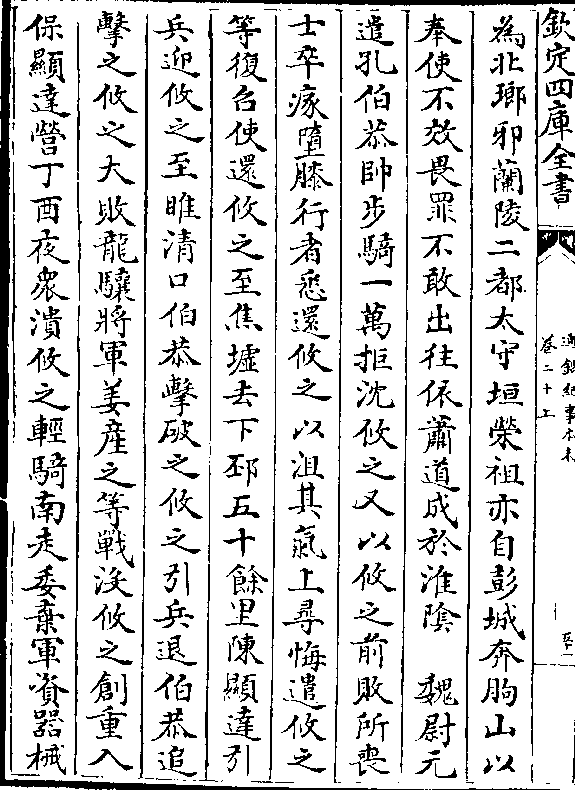 欽定四庫全書
通鑑紀事本末
卷二十上
為北瑯邪蘭陵二郡太守垣榮祖亦自彭城奔朐山以
奉使不效畏罪不敢出往依蕭道成於淮隂　魏尉元
遣孔伯恭帥步騎一萬拒沈攸之又以攸之前敗所喪
士卒瘃墮膝行者悉還攸之以沮其氣上尋悔遣攸之
等復召使還攸之至焦墟去下邳五十餘里陳顯達引
兵迎攸之至睢清口伯恭擊破之攸之引兵退伯恭追
擊之攸之大敗龍驤將軍姜産之等戰没攸之創重入
保顯達營丁酉夜衆潰攸之輕騎南走委棄軍資器械